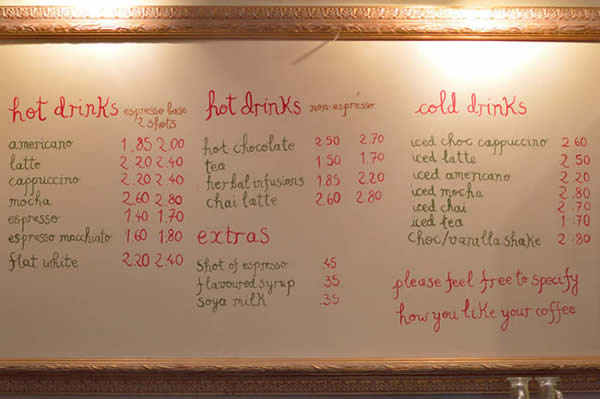 hot drinks espresso base
2 shots
americano 1.85 2.00
latte 2.20 2.40
cappuccino 2.20 2.40
mocha 2.60 2.80
espresso 1.40 1.70
espresso macchiato 1.60 1.80
flat white 2.20 2.40
hot drinks non-espresso
hot chocolate 2.50 2.70
tea 1.50 1.70
herbal infusions 1.85 2.20
chai latte 2.60 2.80
extras
shot of espresso .45
flavoured syrup .35
soya milk .35
cold drinks
iced choc cappuccino 2.60
iced latte 2.50
iced americano 2.20
iced mocha 2.80
iced chai 2.70
iced tea 1.70
choc/vanilla shake 2.80
please feel free to specify
how you like your coffee